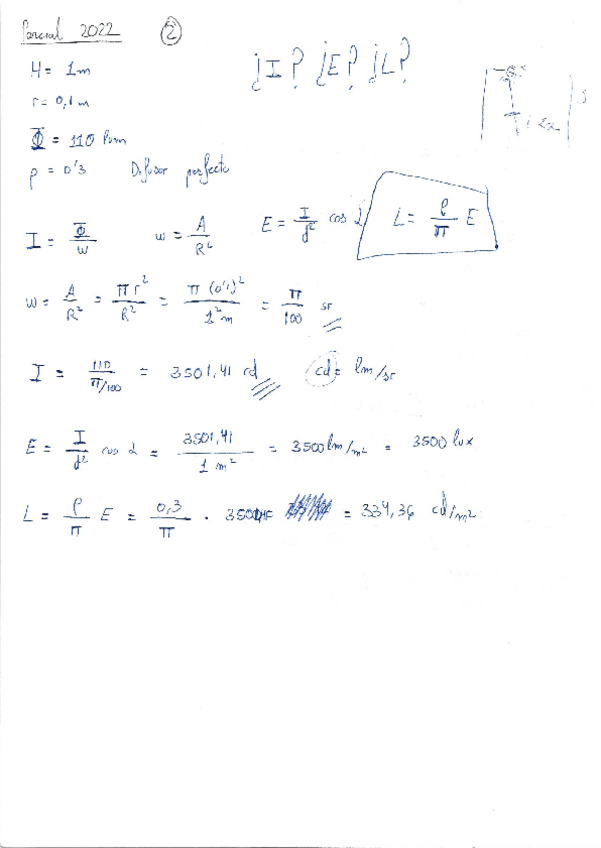 Parcial 2022 ②
H = 1m
¿I? ¿E? ¿L?
r = 0,1 m
Φ = 110 lum
ρ = 0'3 Difusor perfecto
I = Φ/w w = A/R² E = I/d² cos α L = ρ/π E
w = A/R² = πr²/R² = π(0'1)²/1²m = π/100 sr
I = 110/π/100 = 3501,41 cd cd = lm/sr
E = I/d² cos α = 3501,41/1 m² = 3500 lm/m² = 3500 lux
L = ρ/π E = 0,3/π · = 334,36 cd/m²